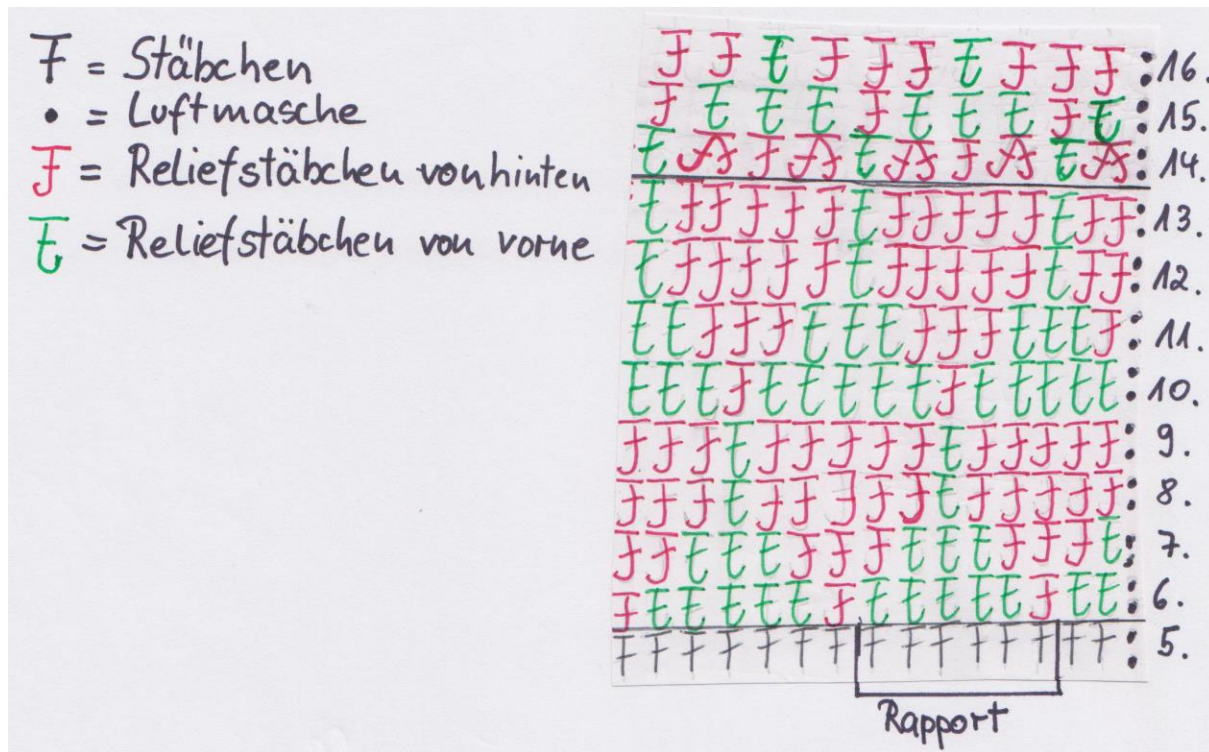 Ŧ = Stäbchen
• = Luftmasche
= Reliefstäbchen von hinten
= Reliefstäbchen von vorne
16.
15.
14.
13.
12.
11.
10.
9.
8.
7.
6.
5.
Rapport